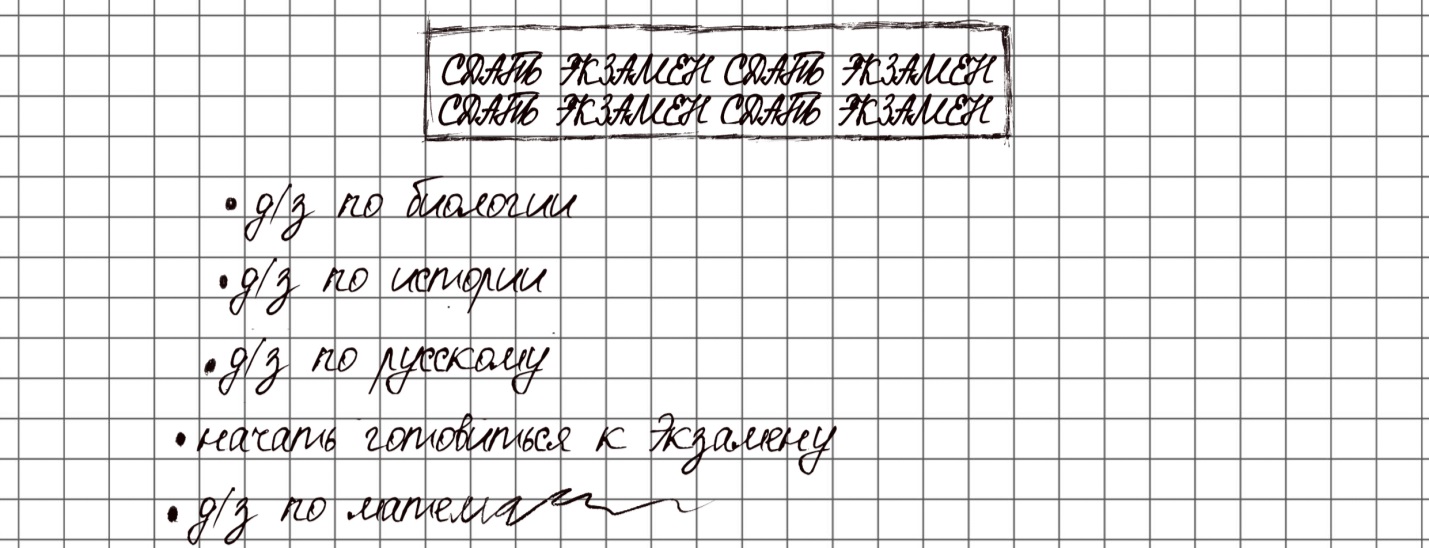 СДАТЬ ЭКЗАМЕН СДАТЬ ЭКЗАМЕН
СДАТЬ ЭКЗАМЕН СДАТЬ ЭКЗАМЕН
• д/з по биологии
• д/з по истории
• д/з по русскому
• начать готовиться к Экзамену
• д/з по матема